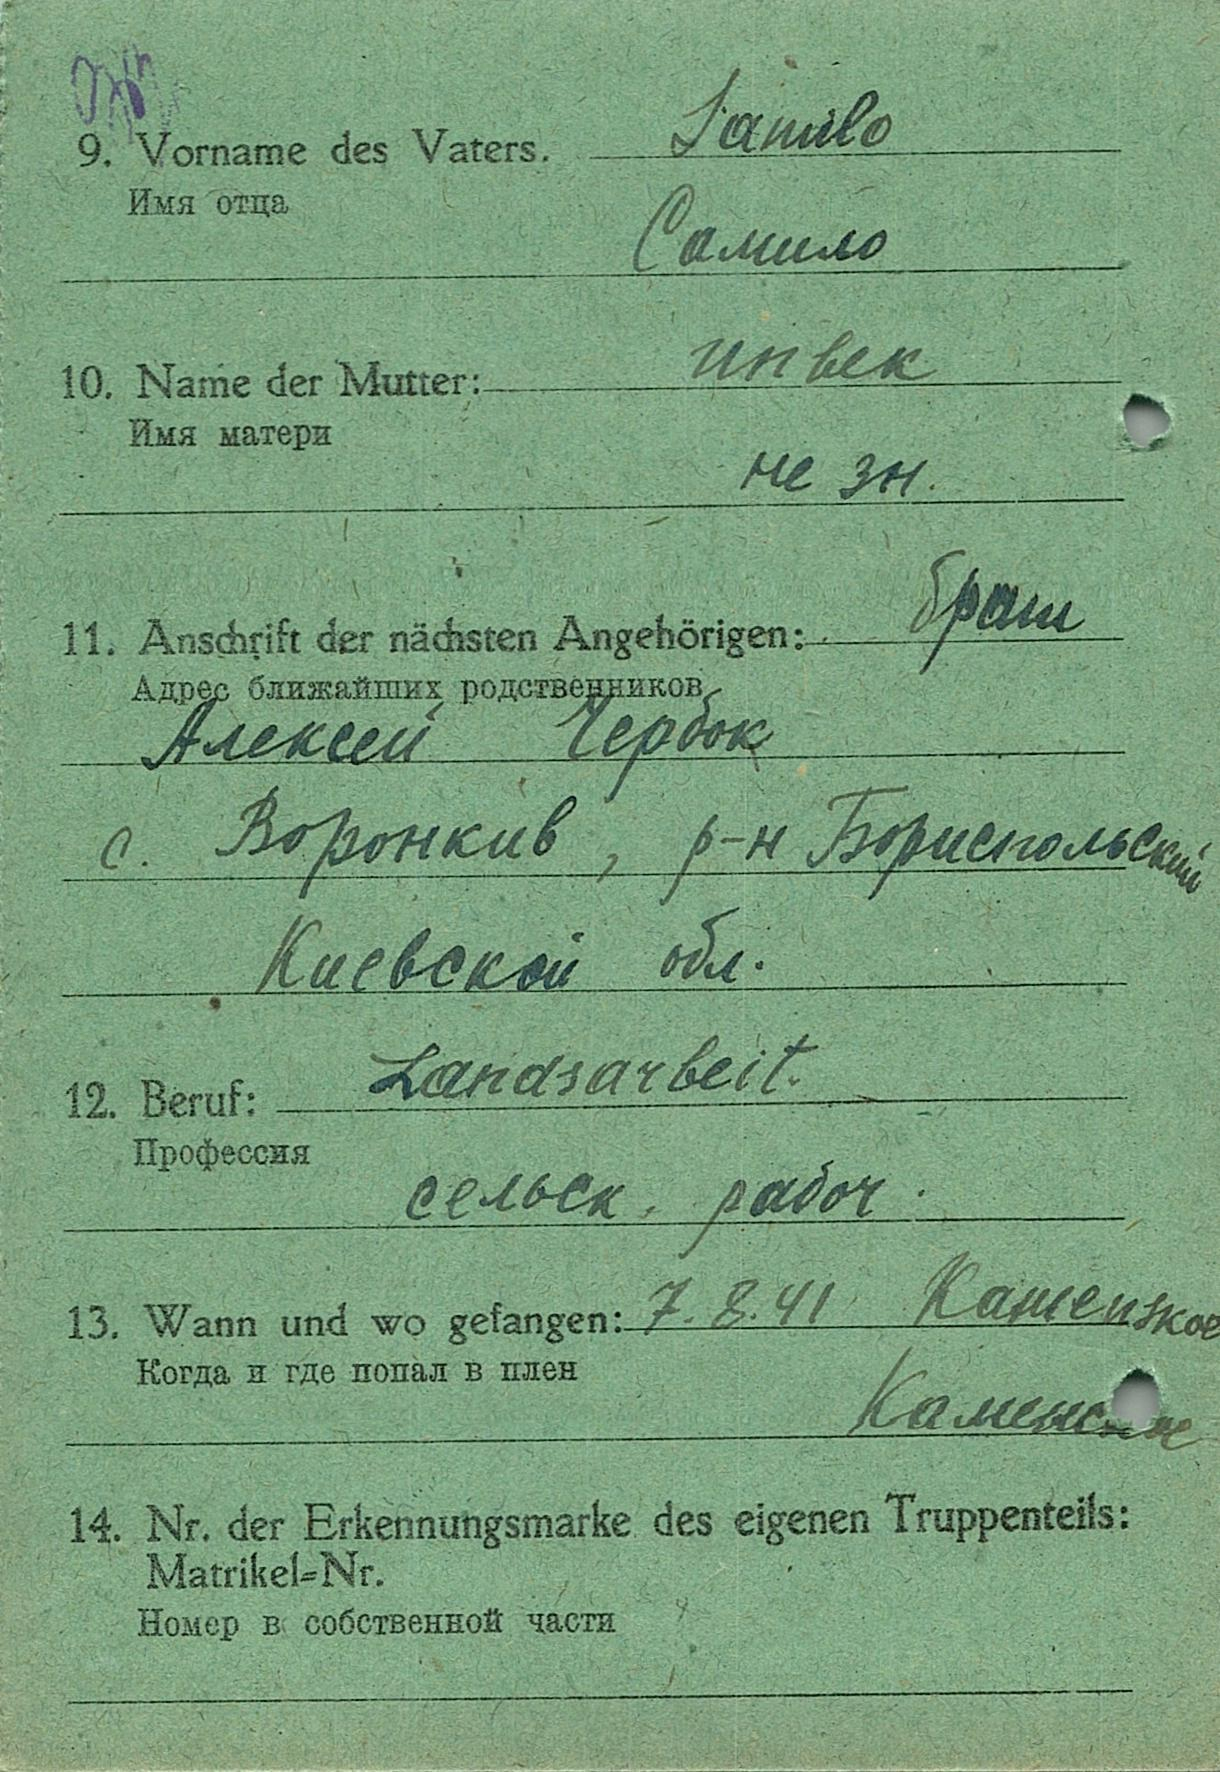 9. Vorname des Vaters. Samilo
Имя отца
Самило
10. Name der Mutter: unbek
Имя матери
не зн.
11. Anschrift der nächsten Angehörigen: брат
Адрес ближайших родственников
Алексей Чербок
с. Воронкив, р-н Бориспольский
Киевской обл.
12. Beruf: Landsarbeit.
Профессия
сельск. рабоч.
13. Wann und wo gefangen: 7.8.41 Kamenskoe
Когда и где попал в плен
Каменское
14. Nr. der Erkennungsmarke des eigenen Truppenteils:
Matrikel=Nr.
Номер в собственной части